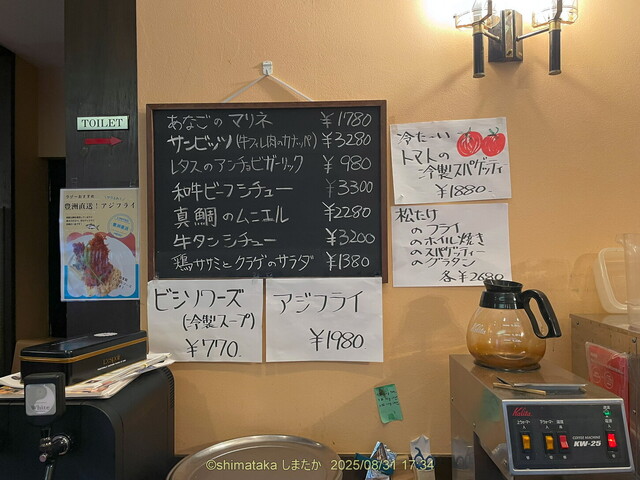 TOILET
豊洲直送！アジフライ
あなごのマリネ ￥1780
サンビッツ(牛スレ肉のカナッパ) ￥3280
レタスのアンチョビガーリック ￥980
和牛ビーフシチュー ￥3300
真鯛のムニエル ￥2280
牛タンシチュー ￥3200
鶏ササミとクラゲのサラダ ￥1380
冷た〜い
トマトの
冷製スパゲッティ
￥1880-
松たけ
のフライ
のホイル焼き
のスパゲッティー
のグラタン
各￥2680
ビシソワーズ
(冷製スープ)
￥770-
アジフライ
￥1980
Kalita
COFFEE MACHINE
KW-25
©shimataka しまたか 2025/08/31 17:34